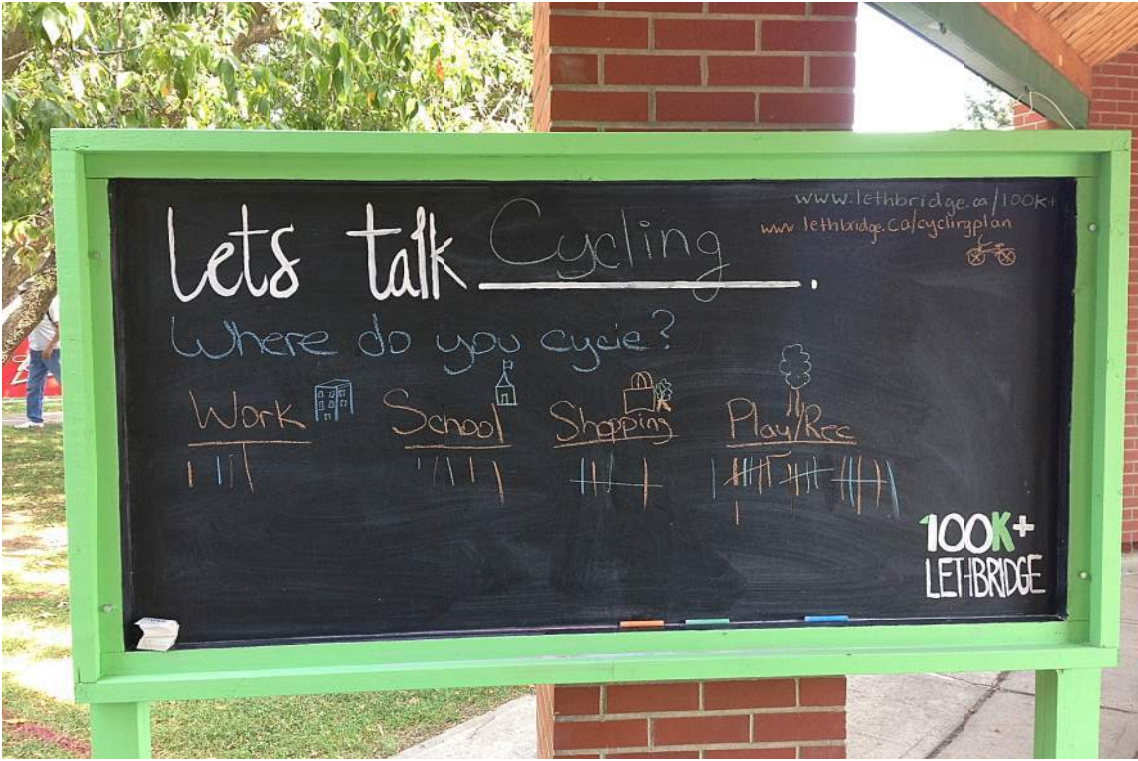 www.lethbridge.ca/100k+
www lethbridge.ca/cyclingplan
Lets talk Cycling.
Where do you cycle?
Work School Shopping Play/Rec
100K+
LETHBRIDGE